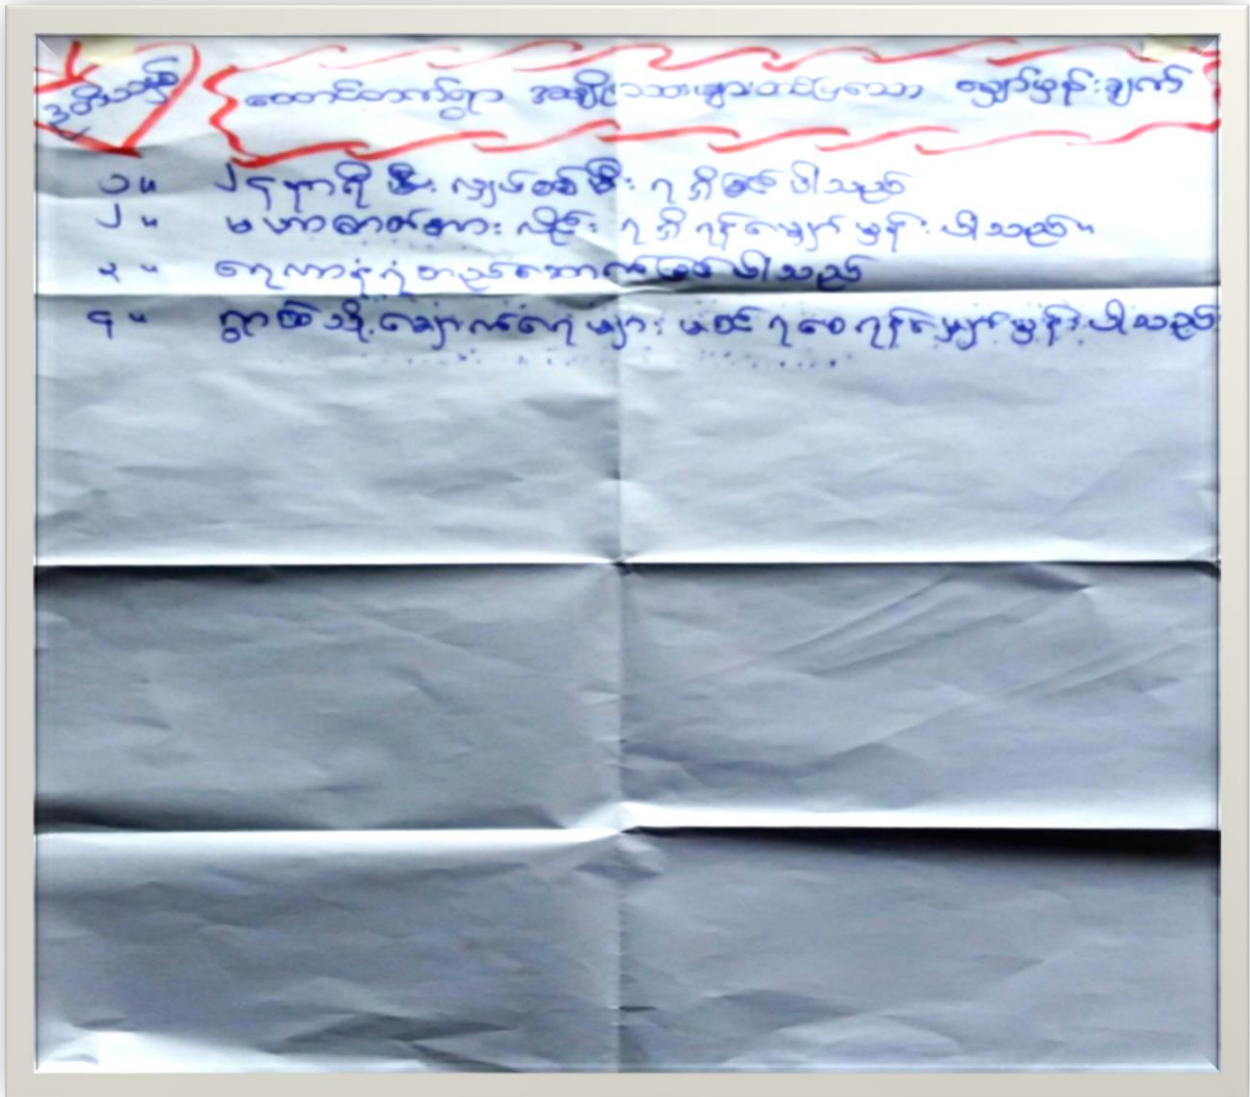 ဒုတိယ
ထောင်တက်ရွာ အမျိုးသားများတင်ပြသော မျှော်မှန်းချက်
၁။ ၂၄ နာရီ မီး လျှပ်စစ်မီး ရရှိ ပါသည်
၂။ မဟာဓာတ်အားလိုင်း ရရှိရန်မျှော်မှန်းပါသည်။
၃။ ရေကာ တည်ဆောက် ပါသည်
၄။ ရွာထဲသို့ ချောက်ရေများ မဝင်ရစေရန်မျှော်မှန်းပါသည်